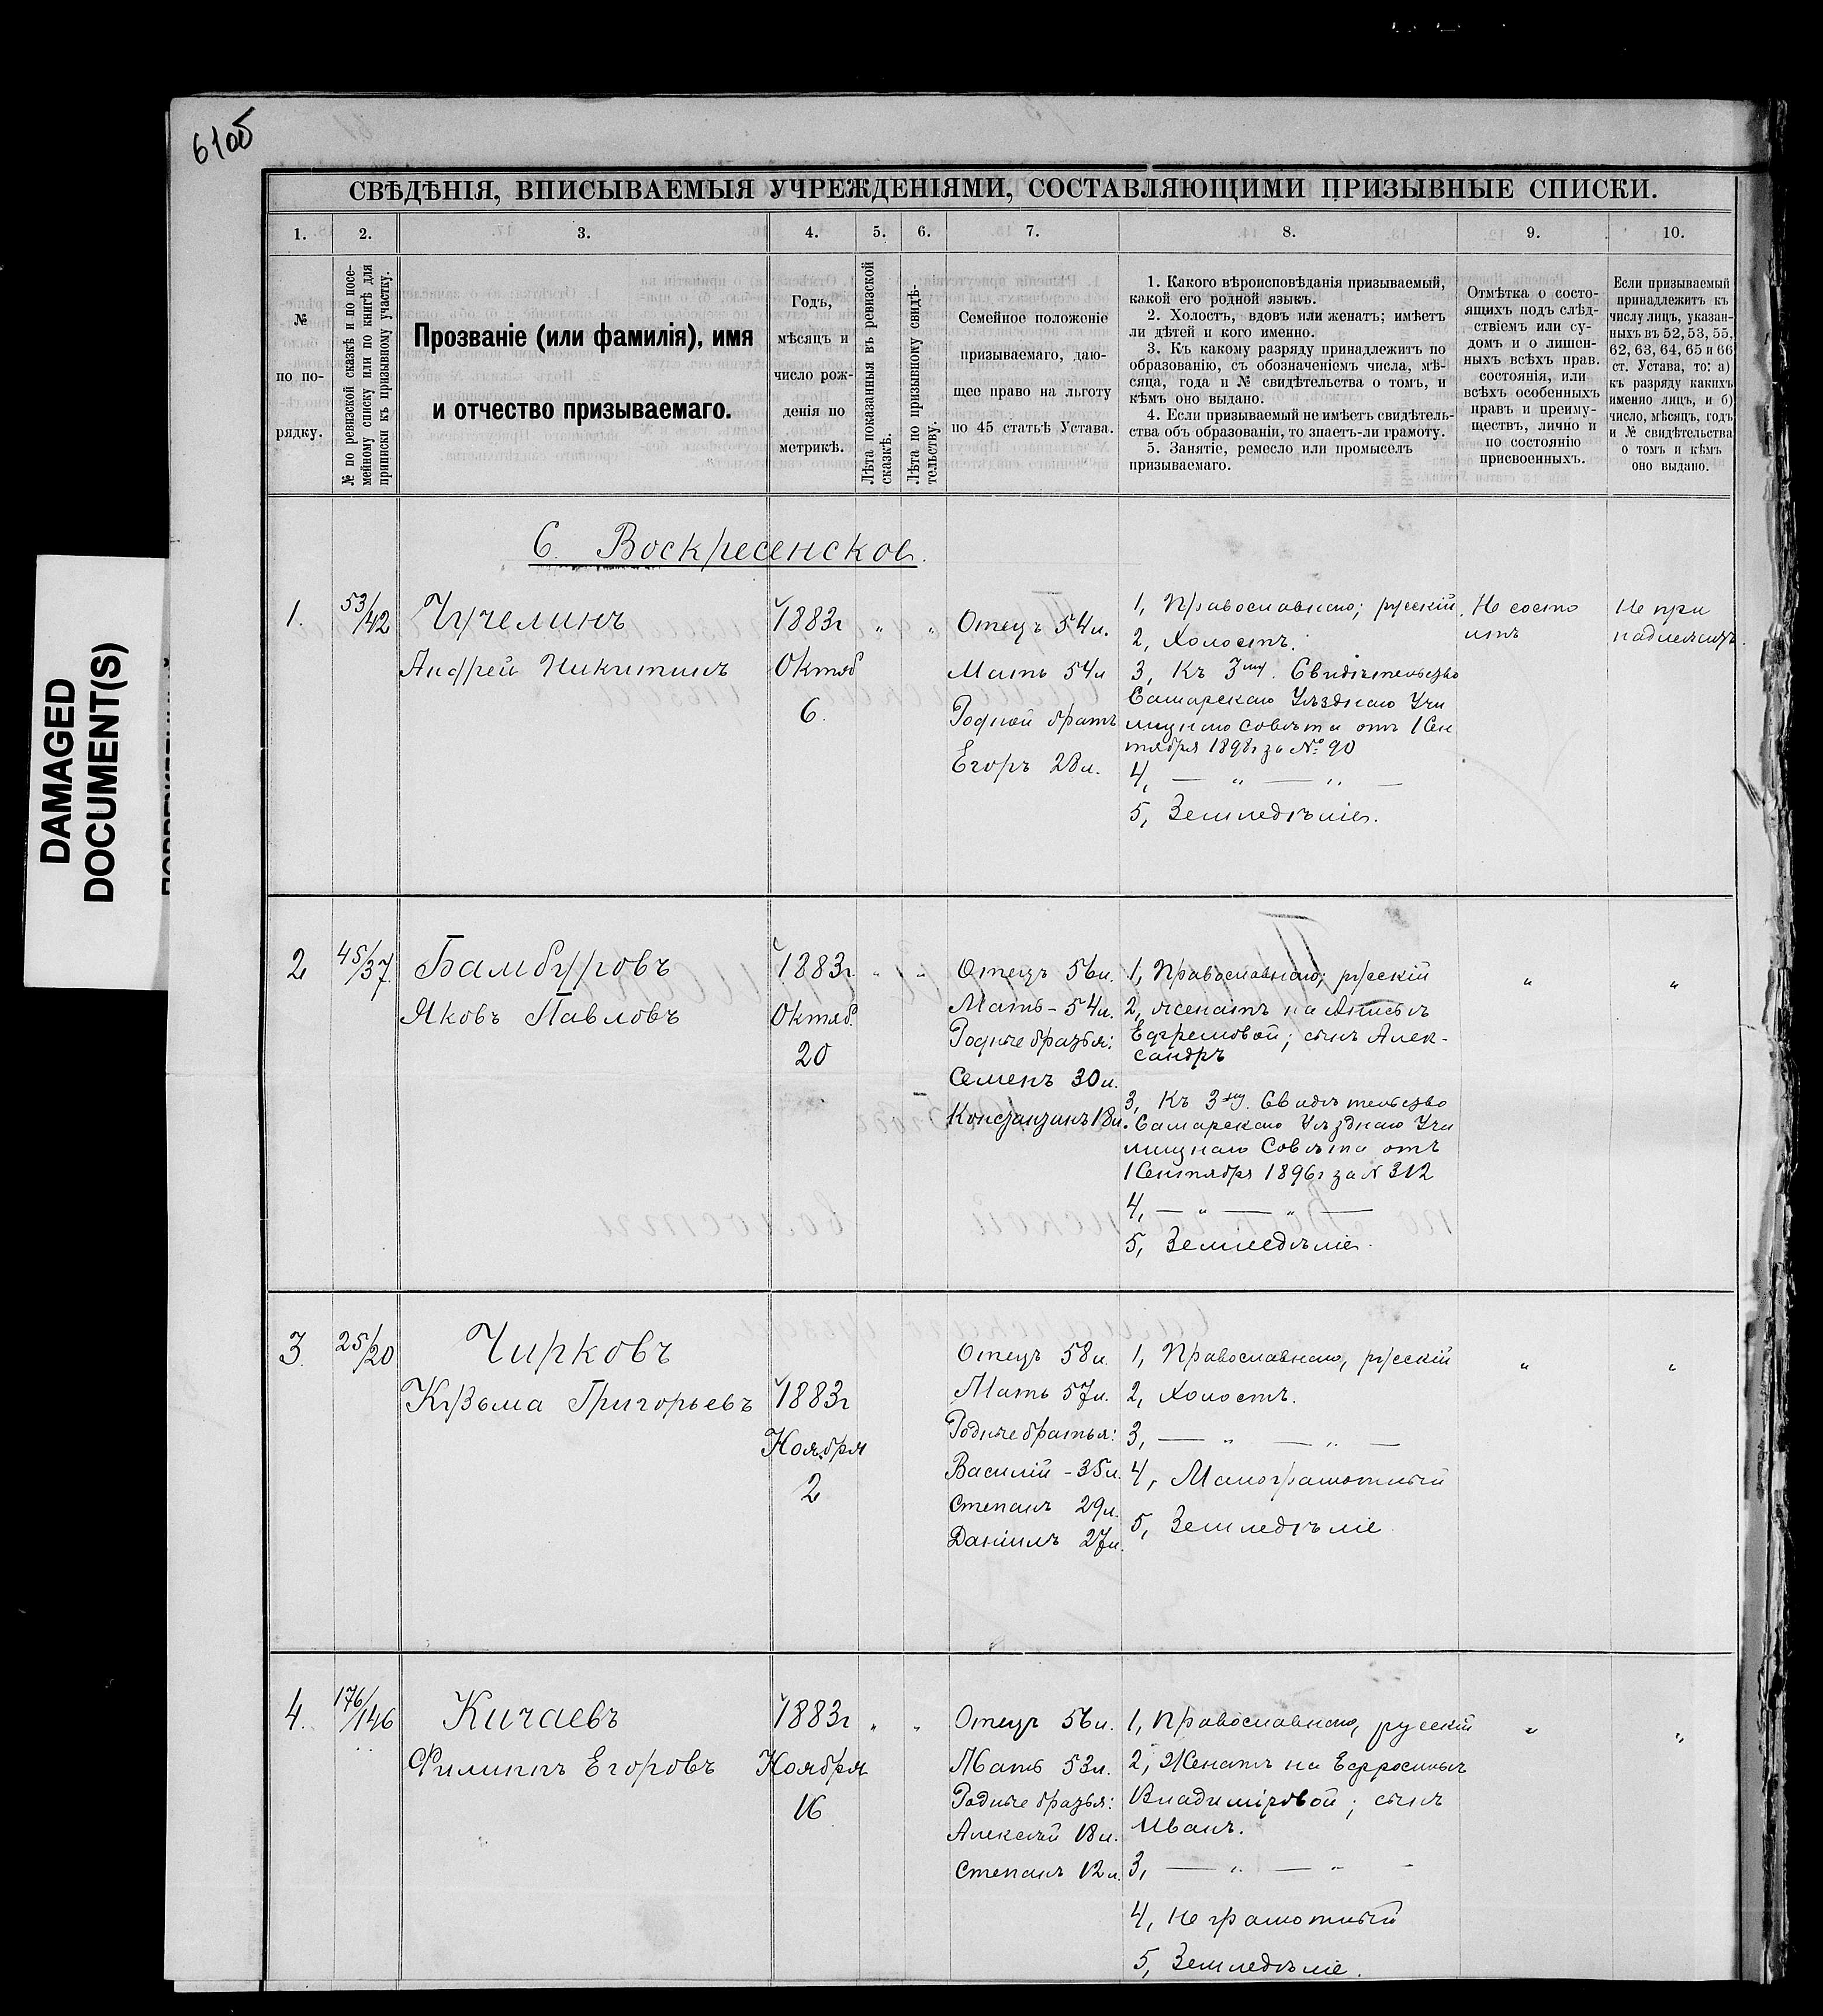 61об
DAMAGED
DOCUMENT(S)
СВѢДѢНІЯ, ВПИСЫВАЕМЫЯ УЧРЕЖДЕНІЯМИ, СОСТАВЛЯЮЩИМИ ПРИЗЫВНЫЕ СПИСКИ.
1. 2. 3. 4. 5. 6. 7. 8. 9. 10.
№
по по-
рядку.
№ по ревизской сказкѣ и по посе-
мейному списку или по книгѣ для
приписки къ призывному участку.
Прозваніе (или фамилія), имя
и отчество призываемаго.
Годъ,
мѣсяцъ и
число рож-
денія по
метрикѣ.
Лѣта показанныя въ ревизской
сказкѣ.
Лѣта по призывному свидѣ-
тельству.
Семейное положеніе
призываемаго, даю-
щее право на льготу
по 45 статьѣ Устава.
1. Какого вѣроисповѣданія призываемый,
какой его родной языкъ.
2. Холостъ, вдовъ или женатъ; имѣетъ
ли дѣтей и кого именно.
3. Къ какому разряду принадлежитъ по
образованію, съ обозначеніемъ числа, мѣ-
сяца, года и № свидѣтельства о томъ, и
кѣмъ оно выдано.
4. Если призываемый не имѣетъ свидѣтель-
ства объ образованіи, то знаетъ-ли грамоту.
5. Занятіе, ремесло или промыселъ
призываемаго.
Отмѣтка о состо-
ящихъ подъ слѣд-
ствіемъ или су-
домъ и о лишен-
ныхъ всѣхъ прав.
состоянія, или
всѣхъ особенныхъ
правъ и преиму-
ществъ, лично и
по состоянію
присвоенныхъ.
Если призываемый
принадлежитъ къ
числу лицъ, указан-
ныхъ въ 52, 53, 55,
62, 63, 64, 65 и 66
ст. Устава, то: а)
къ разряду какихъ
именно лицъ, и б)
число, мѣсяцъ, годъ
и № свидѣтельства
о томъ и кѣмъ
оно выдано.
С. Воскресенское.
1.
53/42
Чучелинъ
Андрей Никитинъ
1883г
Октяб
6.
" "
Отецъ 54л.
Мать 54л
Родной братъ
Егоръ 28л.
1, Православнаго; русскій
2, Холостъ.
3, Къ 3му. Свидѣтельство
Самарскаго Уѣзднаго Учи
лищнаго Совѣта отъ 1 Сен
тября 1898г за № 90
4, — " — " —
5, Земледѣліе.
Не состо
итъ
Не при
надлежитъ.
2
45/37.
Бамбуровъ
Яковъ Павловъ
1883г.
Октяб.
20
" "
Отецъ 56л.
Мать - 54л.
Родные братья:
Семенъ 30л.
Константинъ 18л.
1, Православнаго; русскій
2, женатъ на Анисьѣ
Ефремовой; сынъ Алек-
сандръ
3, Къ 3му. Свидѣтельство
Самарскаго Уѣзднаго Учи
лищнаго Совѣта отъ
1 Сентября 1896г за № 312
4, — " — " —
5, Земледѣліе.
" "
3.
25/20
Чирковъ
Кузьма Григорьевъ
1883г
Ноября
2
Отецъ 58л.
Мать 57л.
Родные братья:
Василій - 35л.
Степанъ 29л.
Даніилъ 27л.
1, Православнаго, русскій
2, Холостъ.
3, — " — " —
4, Малограмотный
5, Земледѣліе.
" "
4.
176/146
Кичаевъ
Филиппъ Егоровъ
1883г
Ноября
16
" "
Отецъ 56л.
Мать 53л.
Родные братья:
Алексѣй 18л.
Степанъ 12л.
1, Православнаго, русскій
2, Женатъ на Евфросиньѣ
Владиміровой; сынъ
Иванъ.
3, — " — " -
4, Не грамотный
5, Земледѣліе.
" "